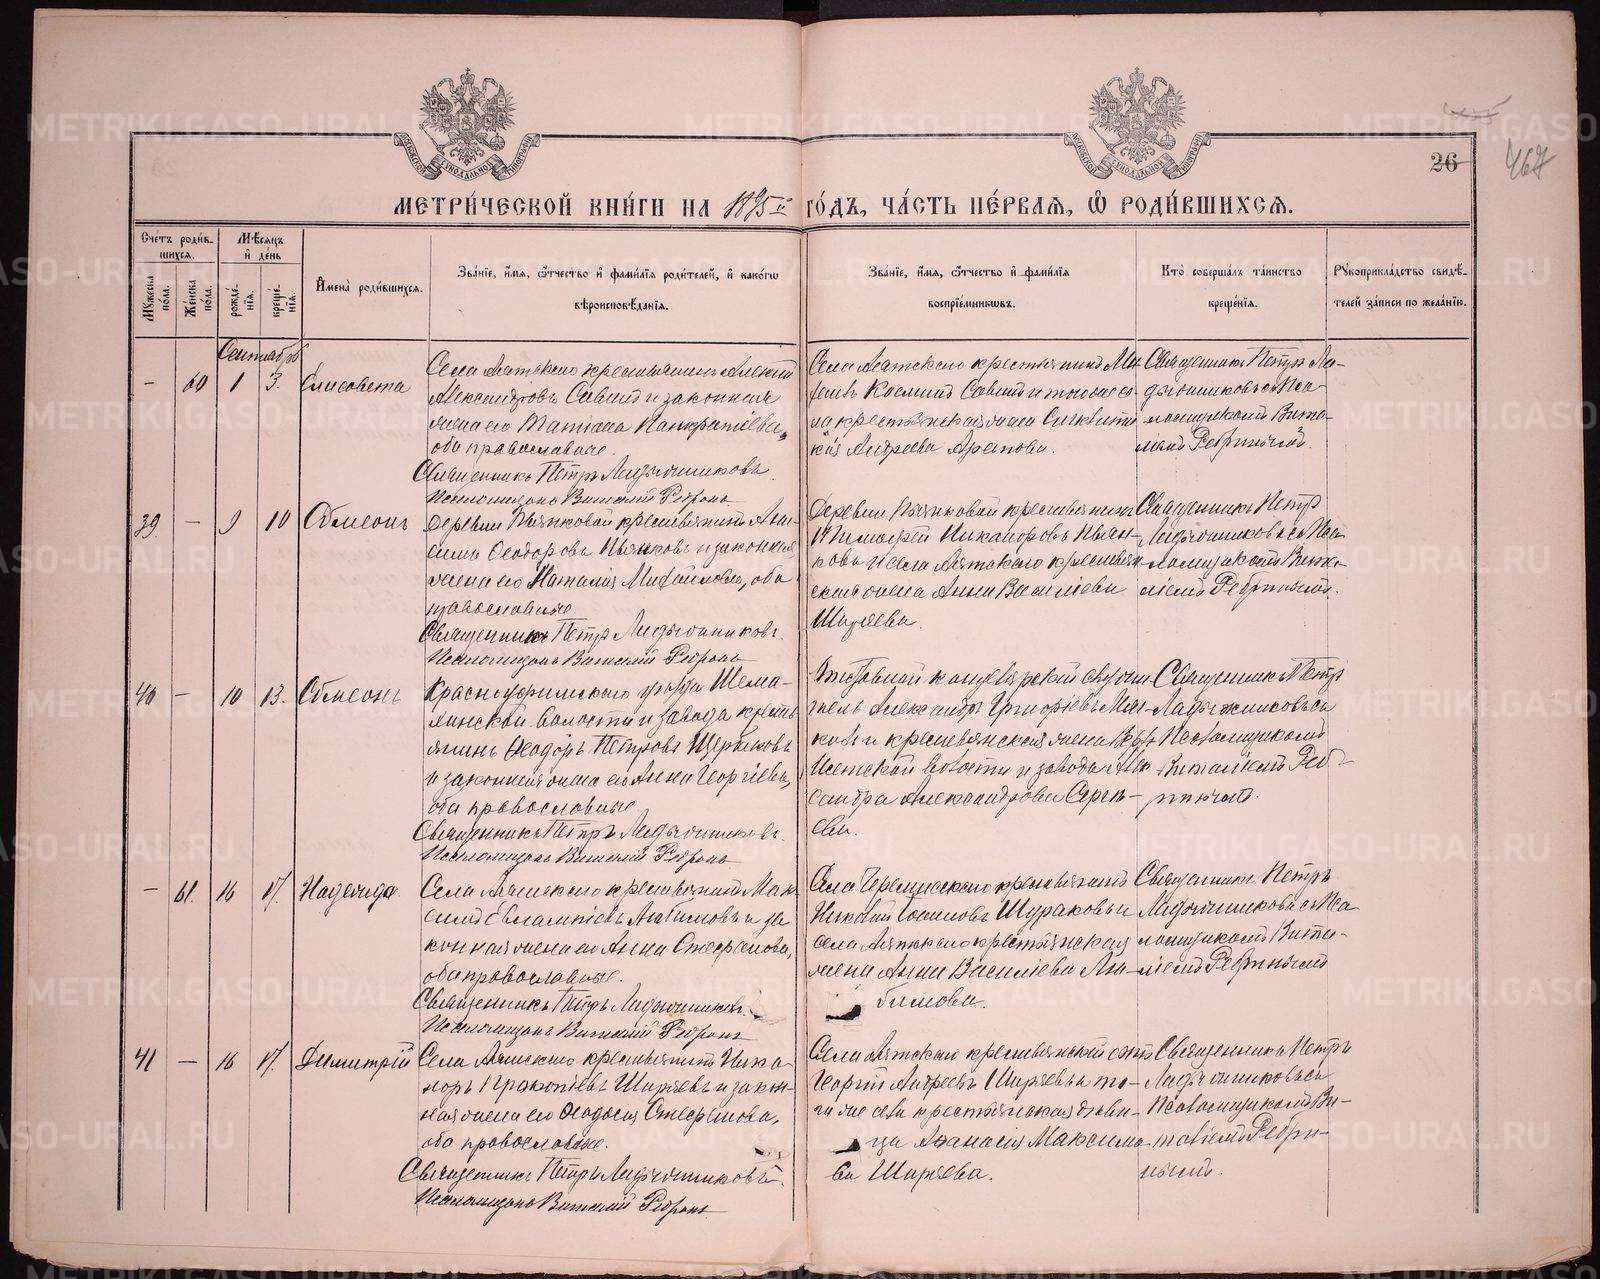 МЕТРИ́ЧЕСКОЙ КНИ́ГИ НА 1895й ГО́ДЪ, ЧА́СТЬ ПЕ́РВАЯ, Ѽ РОДИ́ВШИХСЯ.
26
467
Сче́тъ роди́вшихся.
Мѣ́сяцъ и҆ де́нь
Му́жеска по́ла.
Же́нска по́ла.
рожде́нїя.
креще́нїя.
И҆мена̀ роди́вшихся.
Зва́нїе, и҆́мя, ѻ҆́тчество и҆ фами́лїя роди́телей, и҆ како́гѡ вѣроисповѣ́данїя.
Зва́нїе, и҆́мя, ѻ҆́тчество и҆ фами́лїя воспрїе́мникѡвъ.
Кто̀ соверша́лъ та́инство креще́нїя.
Рꙋкоприкла́дство свидѣ́телей за́писи по жела́нїю.
Сентябрь
— 60 1 3. Елисавета
Села Аятскаго крестьянинъ Алексій
Александровъ Савинъ и законная
жена его Татіана Панкратіева,
оба православные.
Священникъ Петръ Ладыжниковъ
Псаломщикъ Виталій Ребринъ
Села Аятскаго крестьянинъ
Косьминъ Савинъ и тогоже се-
ла крестьянская жена
Андреева Арапова.
Священникъ Петръ Ла-
дыжниковъ съ Пса-
ломщикомъ Вита-
ліемъ Ребринымъ.
39. — 9 10 Сѵмеонъ
Деревни Пьянковой крестьянинъ Ани-
симъ Ѳеодоровъ Пьянковъ и законная
жена его Наталія Михаилова, оба
православные
Священникъ Петръ Ладыжниковъ.
Псаломщикъ Виталій Ребринъ
Деревни Пьянковой крестьянинъ
Тимоѳей Никаноровъ Пьян-
ковъ и села Аятскаго крестьян-
ская жена Анна Василіева
Ширяева.
Священникъ Петръ
Ладыжниковъ съ Пса-
ломщикомъ Вита-
ліемъ Ребринымъ.
40 — 10 13. Сѵмеонъ
Красноуфимскаго уѣзда Шема-
хинской волости и завода кресть-
янинъ Ѳеодоръ Петровъ
и законная жена его Анна Георгіева,
оба православные
Священникъ Петръ Ладыжниковъ.
Псаломщикъ Виталій Ребринъ
Отставной канцелярскій служи-
тель Александръ Григоріевъ
и крестьянская жена Верхъ-
Исетской волости и завода Алек-
сандра Александрова Серге-
ева.
Священникъ Петръ
Ладыжниковъ съ
Псаломщикомъ
Виталіемъ Реб-
ринымъ.
— 61. 16 17. Надежда.
Села Аятскаго крестьянинъ Мак-
симъ Евлампіевъ Любимовъ и за-
конная жена его Анна Стефанова,
оба православные.
Священникъ Петръ Ладыжниковъ.
Псаломщикъ Виталій Ребринъ
Села Черемисскаго крестьянинъ
Николай Іоанновъ Шураковъ и
села Аятскаго крестьянская
жена Анна Василіева Лю-
бимова.
Священникъ Петръ
Ладыжниковъ съ Пса-
ломщикомъ Вита-
ліемъ Ребринымъ
41 — 16 17. Димитрій
Села Аятскаго крестьянинъ Ника-
норъ Прокопіевъ Ширяевъ и закон-
ная жена его Ѳеодосія Стефанова,
оба православные.
Священникъ Петръ Ладыжниковъ.
Псаломщикъ Виталій Ребринъ
Села Аятскаго крестьянскій сынъ
Георгій Андреевъ Ширяевъ и то-
го же села крестьянская дѣви-
ца Аѳанасія Максимо-
ва Ширяева.
Священникъ Петръ
Ладыжниковъ съ
Псаломщикомъ Ви-
таліемъ Ребри-
нымъ.
METRIKI.GASO-URAL.RU